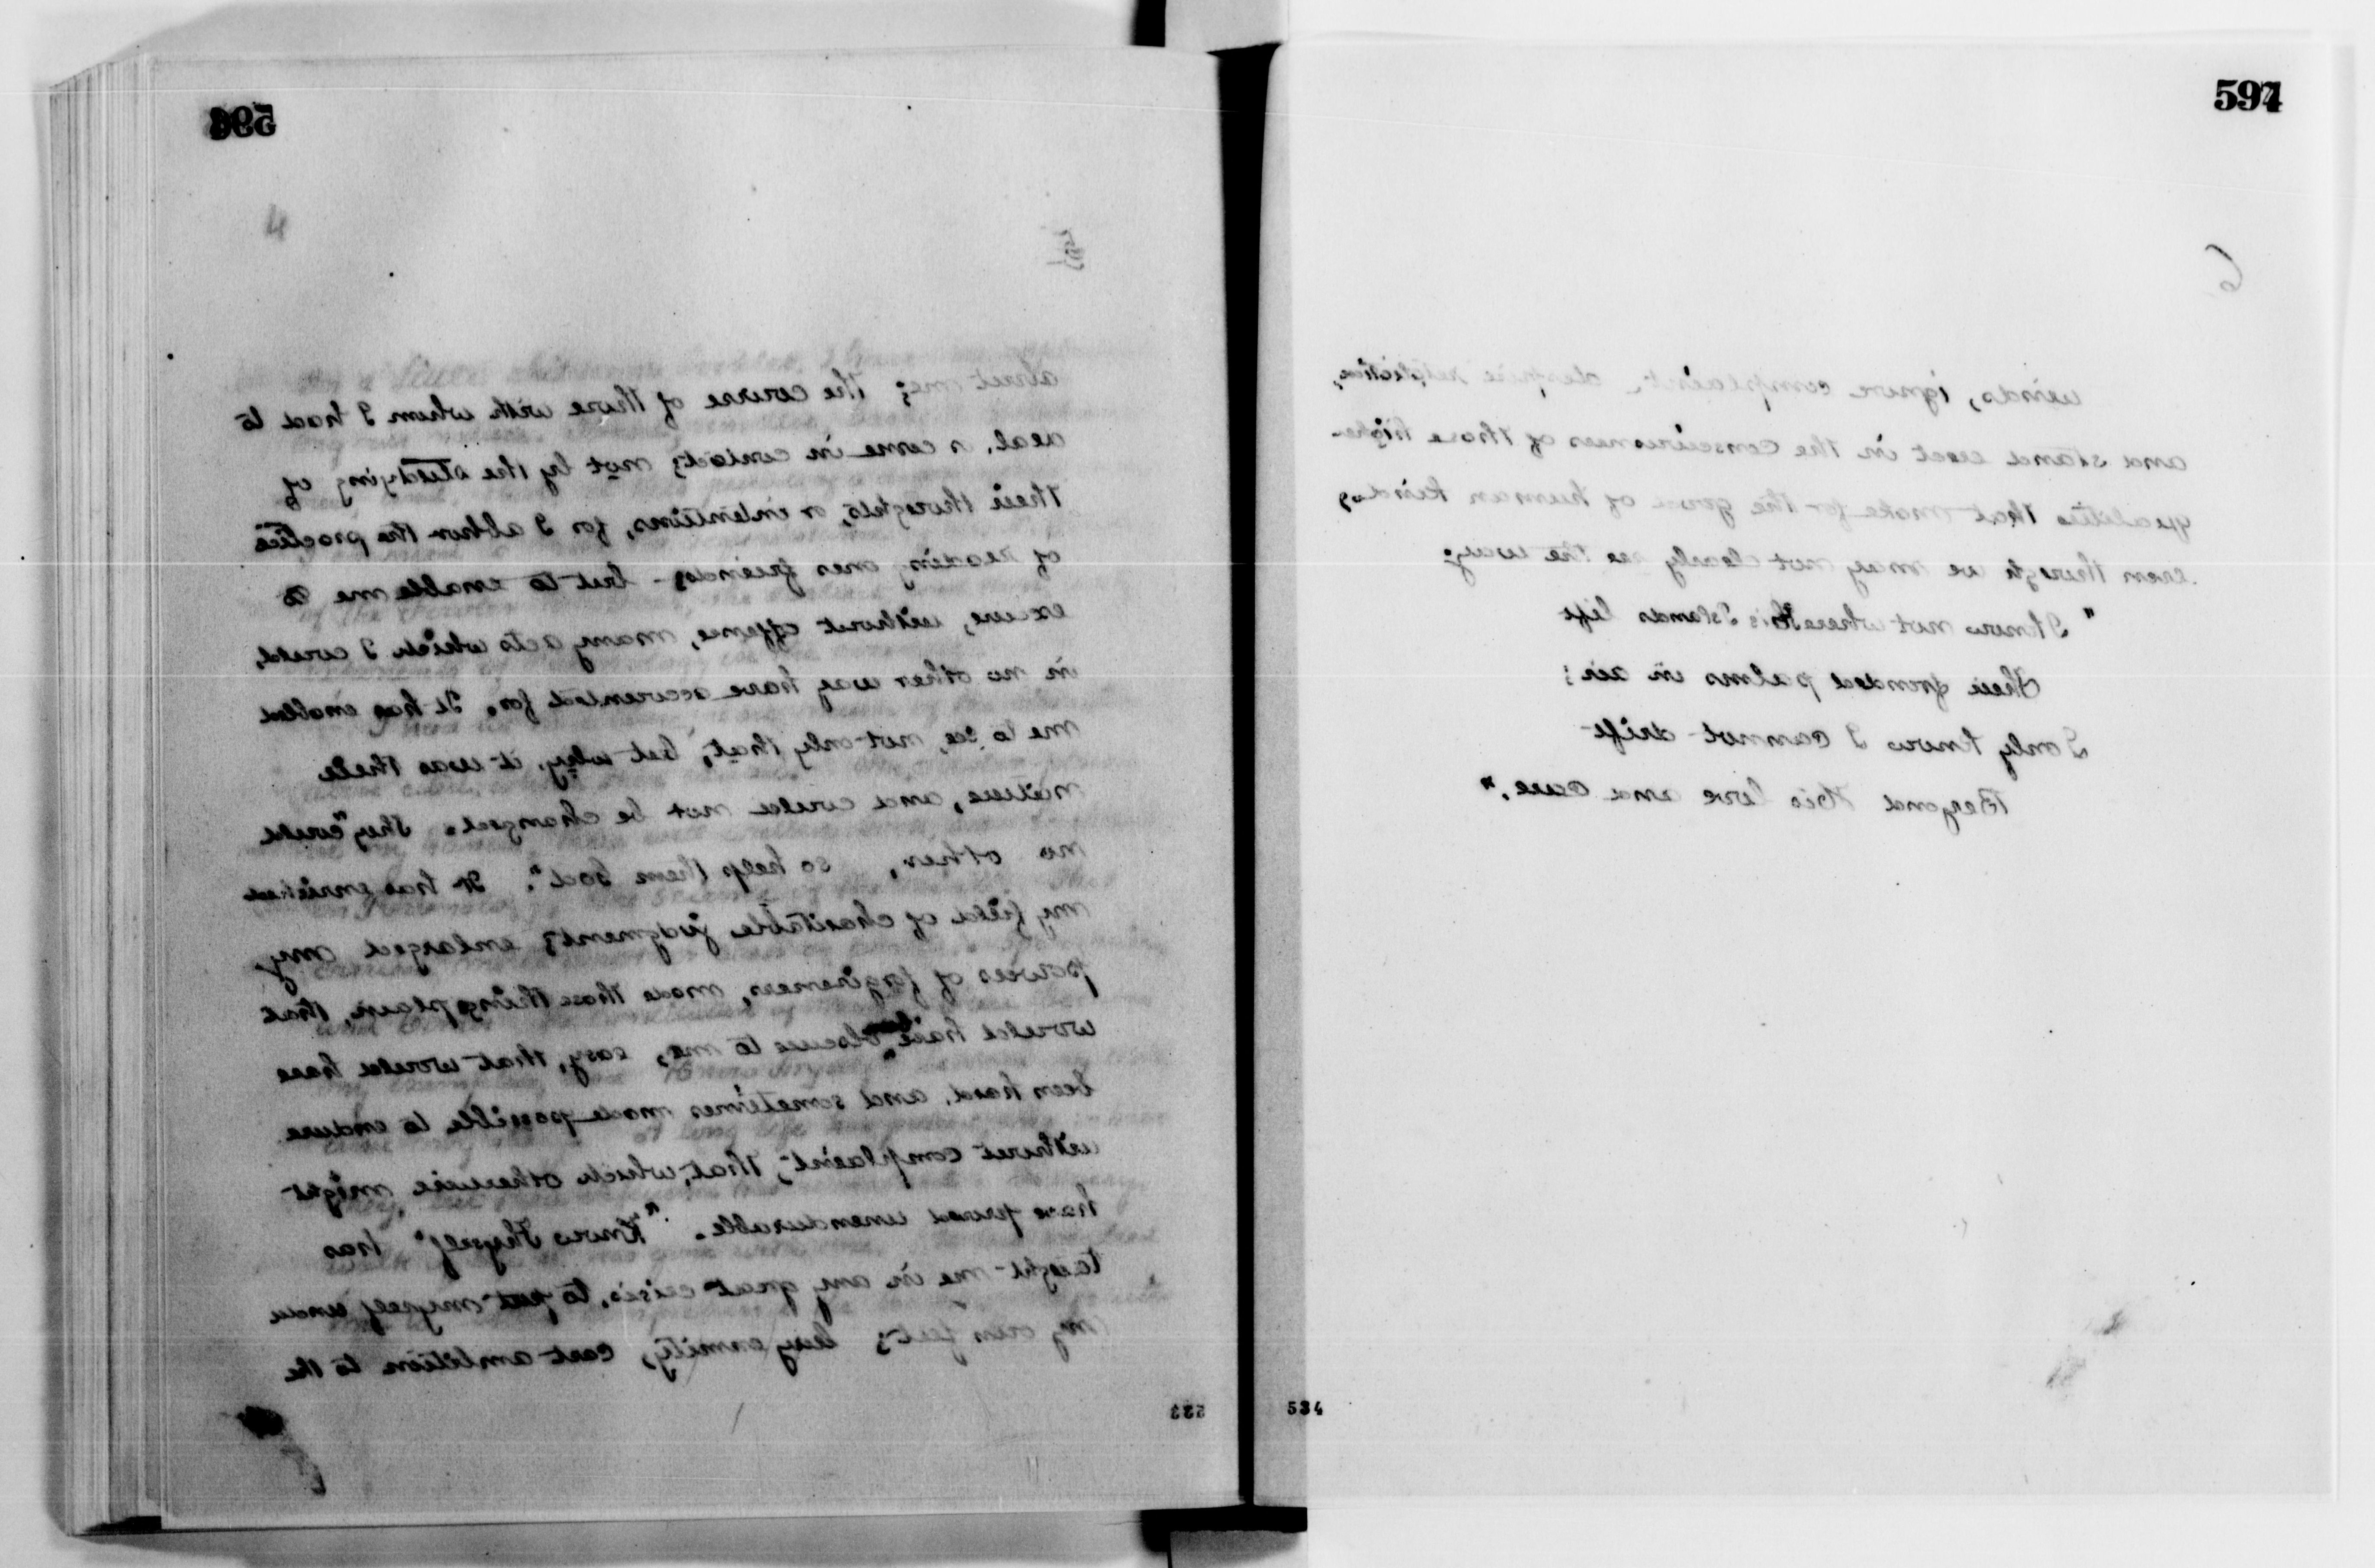 596
4
5
about me; the course of those with whom I had to
deal, or come in contact; not by the studying of
their thoughts, or intentions, for I abhor the practice
of reading ones friends; - but to enable me to
excuse, without offense, many acts which I could,
in no other way have accounted for. It has enabled
me to see, not only that, but why, it was their
nature, and could not be changed. They "could
no other, so help them God". It has enriched
my field of charitable judgment; enlarged my
powers of forgiveness, made those things plain, that
would have been obscure to me, easy, that would have
been hard, and sometimes made possible to endure
without complaint; that, which otherwise might
have proved unendurable. "Know Thyself" has
taught me in any great crisis, to put myself under
my own feet; bury enmity, cast ambition to the
533
597
6
winds, ignore complaint, despise retaliation,
and stand erect in the consciousness of those higher
qualities that make for the good of human kind;
even though we may not clearly see the way;
"I know not where His Islands lift
Their fronded palms in air;
I only know I cannot drift
Beyond His love and care".
534